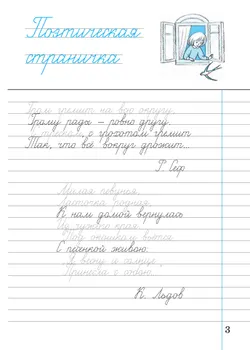 Поэтическая
страничка
Гром гремит на всю округу.
Грому рады – ровно другу.
С треском, с грохотом гремит
Так, что всё вокруг дрожит...
Р. Сеф
Милая певунья,
Ласточка родная,
К нам домой вернулась
Из чужого края.
Под окошком вьётся
С песенкой живою:
„Я весну и солнце
Принесла с собою...
К. Льдов
3